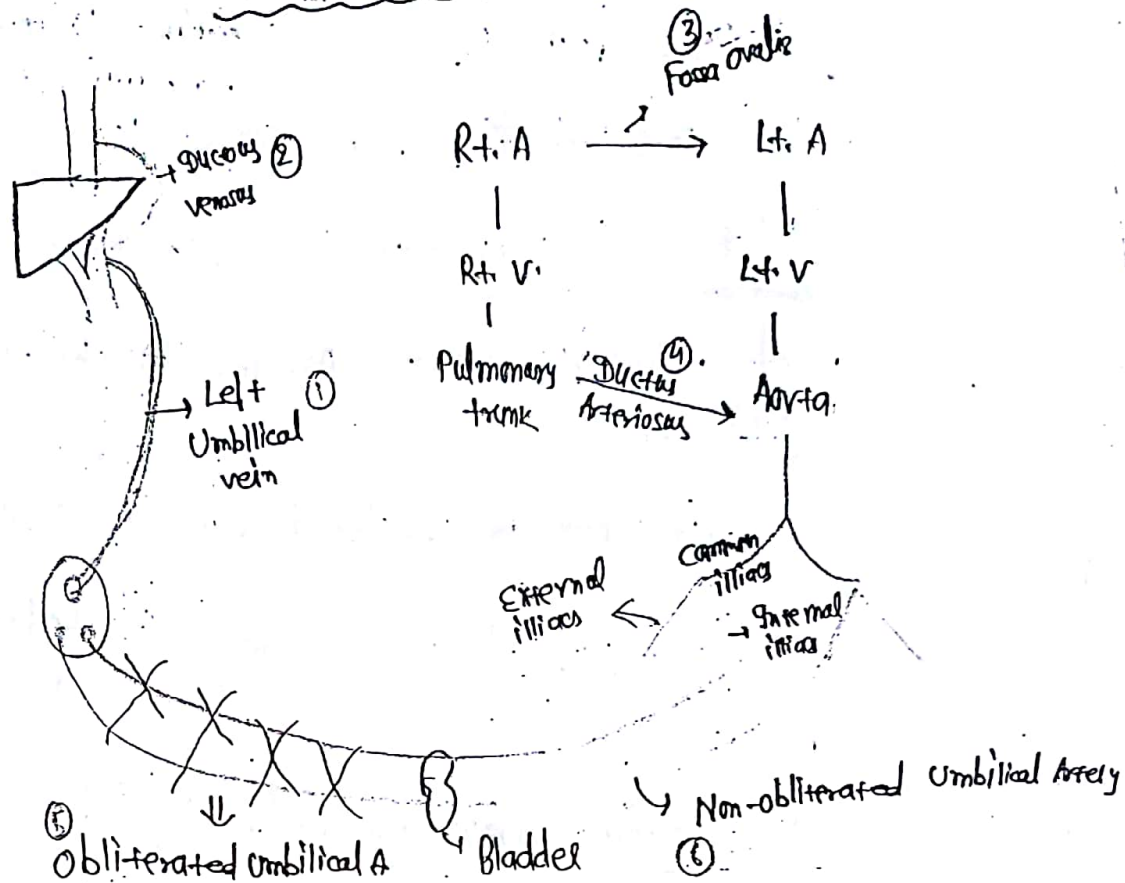 ③
Fossa ovalis
Rt. A
Lt. A
Ductous ②
venosus
Rt. V.
Lt. V
Pulmonary
trunk
Ductus ④
Arteriosus
Aorta
Left ①
Umbilical
vein
Common
illiacs
External
illiacs
Internal
illiacs
Non-obliterated Umbilical Artery
⑥
⑤
Obliterated Umbilical A
Bladder